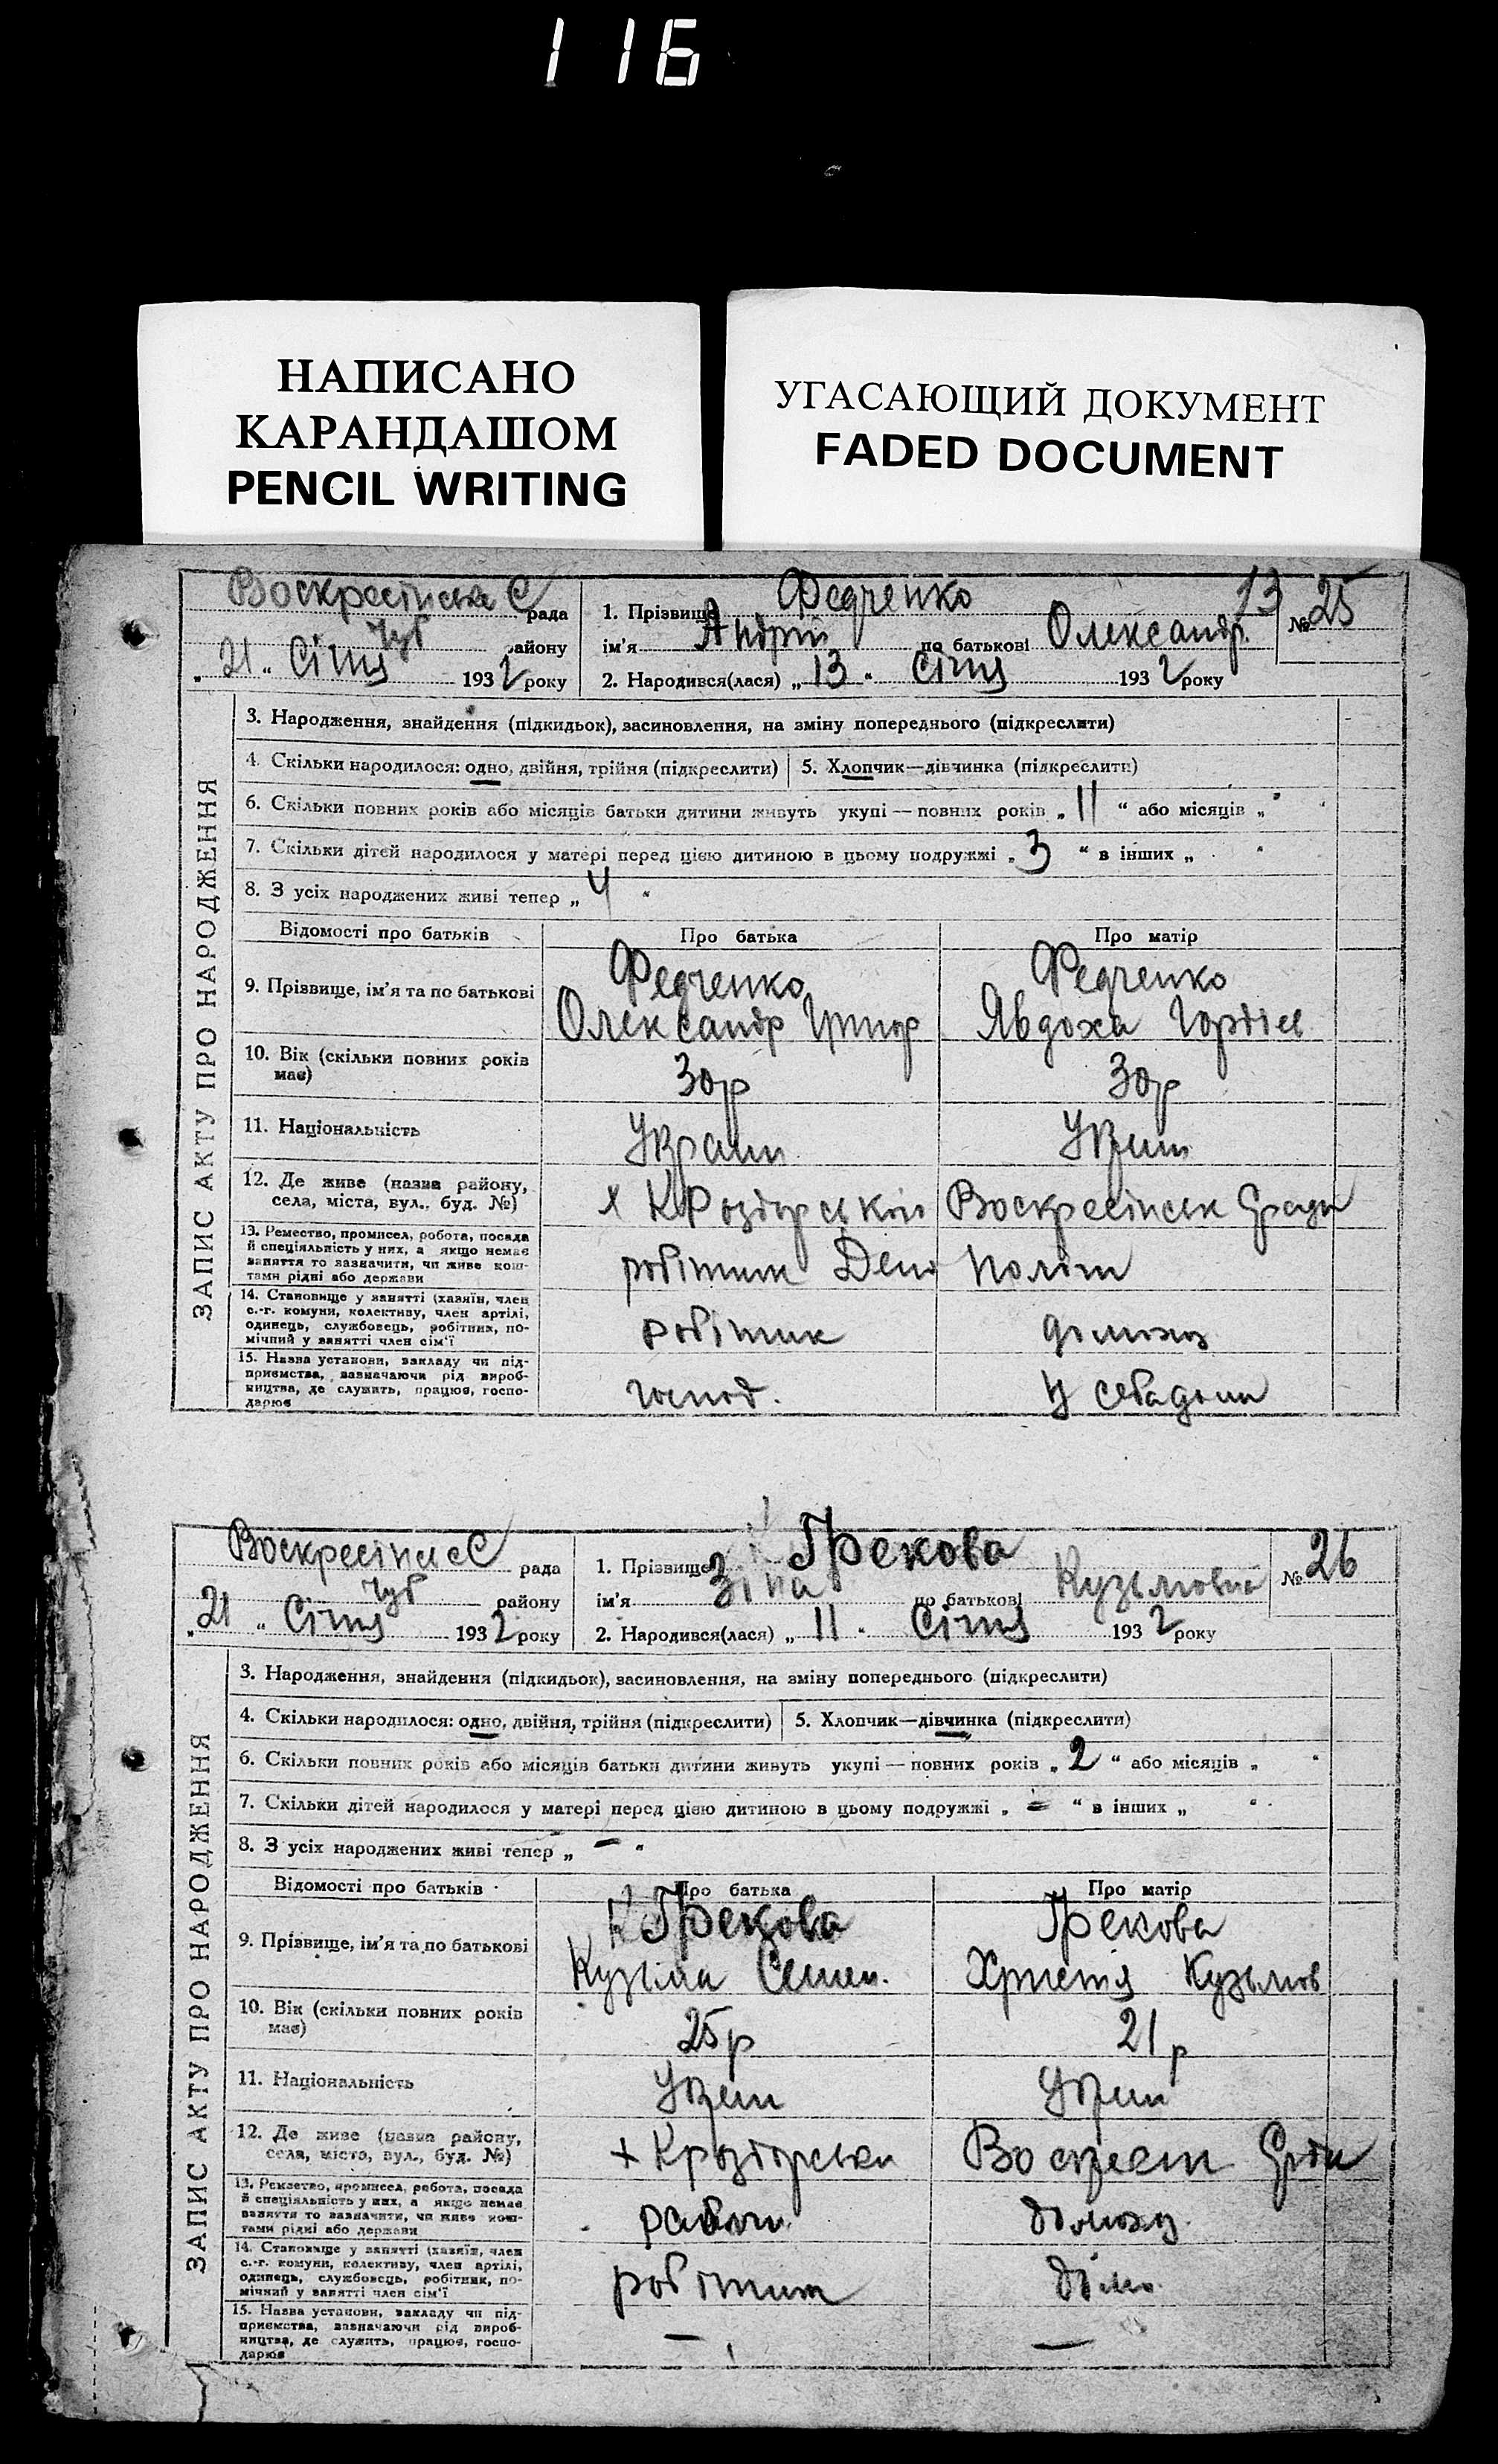 116
НАПИСАНО
КАРАНДАШОМ
PENCIL WRITING
УГАСАЮЩИЙ ДОКУМЕНТ
FADED DOCUMENT
ЗАПИС АКТУ ПРО НАРОДЖЕННЯ
Воскресінська С рада
Чуб району
„21“ Січня 1932 року
1. Прізвище Федченко 13
ім'я Андрій по батькові Олександр.
№ 25
2. Народився(лася) „13“ Січня 1932 року
3. Народження, знайдення (підкидьок), засиновлення, на зміну попереднього (підкреслити)
4. Скільки народилося: одно, двійня, трійня (підкреслити) 5. Хлопчик—дівчинка (підкреслити)
6. Скільки повних років або місяців батьки дитини живуть укупі — повних років „11“ або місяців „ “
7. Скільки дітей народилося у матері перед цією дитиною в цьому подружжі „3“ в інших „ “
8. З усіх народжених живі тепер „4“
Відомості про батьків Про батька Про матір
9. Прізвище, ім'я та по батькові
Федченко Федченко
Олександр Григор Явдоха Гордіев
10. Вік (скільки повних років має) 30р 30р
11. Національність Украин Украин
12. Де живе (назва району, села, міста, вул., буд. №)
х К Роздорській Воскресінськ Сради
13. Ремество, промисел, робота, посада й спеціяльність у них, а якщо немає заняття то зазначити, чи живе коштами рідні або держави
робітник Депо
14. Становище у занятті (хазяїн, член с.-г. комуни, колективу, член артілі, одинець, службовець, робітник, помічний у занятті член сім'ї
робітник домохоз
15. Назва установи, закладу чи підприємства, зазначаючи рід виробництва, де служить, працює, господарює
господ. У себа дома
ЗАПИС АКТУ ПРО НАРОДЖЕННЯ
Воскресінськ С рада
Чуб району
„21“ Січня 1932 року
1. Прізвище Грекова
ім'я Зіна по батькові Кузьмовна
№ 26
2. Народився(лася) „11“ Січня 1932 року
3. Народження, знайдення (підкидьок), засиновлення, на зміну попереднього (підкреслити)
4. Скільки народилося: одно, двійня, трійня (підкреслити) 5. Хлопчик—дівчинка (підкреслити)
6. Скільки повних років або місяців батьки дитини живуть укупі — повних років „2“ або місяців „ “
7. Скільки дітей народилося у матері перед цією дитиною в цьому подружжі „–“ в інших „ “
8. З усіх народжених живі тепер „–“
Відомості про батьків Про батька Про матір
9. Прізвище, ім'я та по батькові
Грекова Грекова
Кузьма Семен. Христя Кузьмов
10. Вік (скільки повних років має) 25р 21р
11. Національність Украин Украин
12. Де живе (назва району, села, міста, вул., буд. №)
+ К роздорськи Воскресн
13. Ремество, промисел, робота, посада й спеціяльність у них, а якщо немає заняття то зазначити, чи живе коштами рідні або держави
домохоз.
14. Становище у занятті (хазяїн, член с.-г. комуни, колективу, член артілі, одинець, службовець, робітник, помічний у занятті член сім'ї
робітник домо.
15. Назва установи, закладу чи підприємства, зазначаючи рід виробництва, де служить, працює, господарює
— —